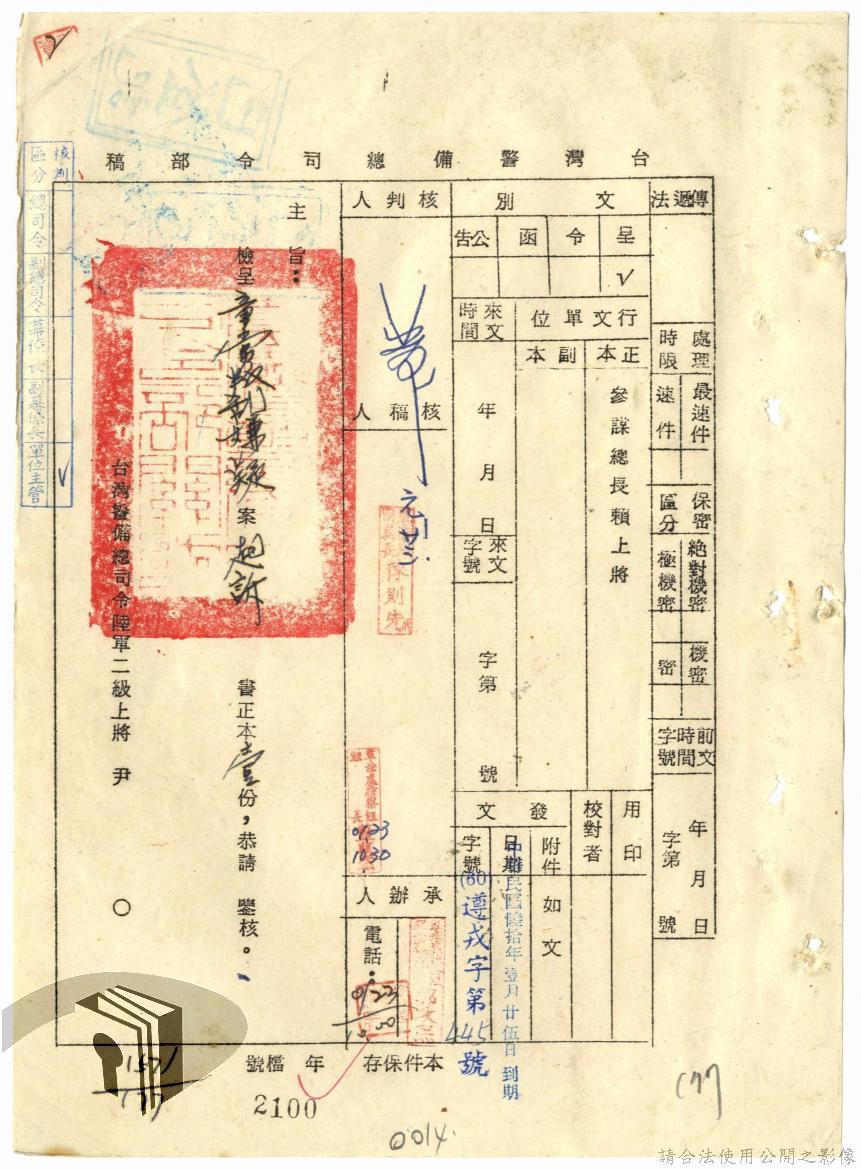 台灣警備總司令部稿
傳遞法
處理時限
最速件
速件
保密區分
絕對機密
極機密
機密
密
前文時間字號
年月日
字第號
文別
呈
令
函
公告
V
行文單位
正本
副本
參謀總長賴上將
來文時間
年月日
來文字號
字第號
用印
校對者
發文
附件
如文
日期
中華民國陸拾年壹月廿伍日到期
字號
(60)遵戎字第445號
核判人
元廿三
核稿人
陳則先
軍法處檢察組組長
0123
1030
承辦人
電話：
0123
10.00
主旨：
檢呈童常叛亂嫌疑案起訴書正本壹份，恭請鑒核。
台灣警備總司令陸軍二級上將尹○
核判區分
總司令
副總司令
幕僚長
副幕僚長
單位主管
V
本件保存年檔號
1571
177
2100
0014
177
請合法使用公開之影像